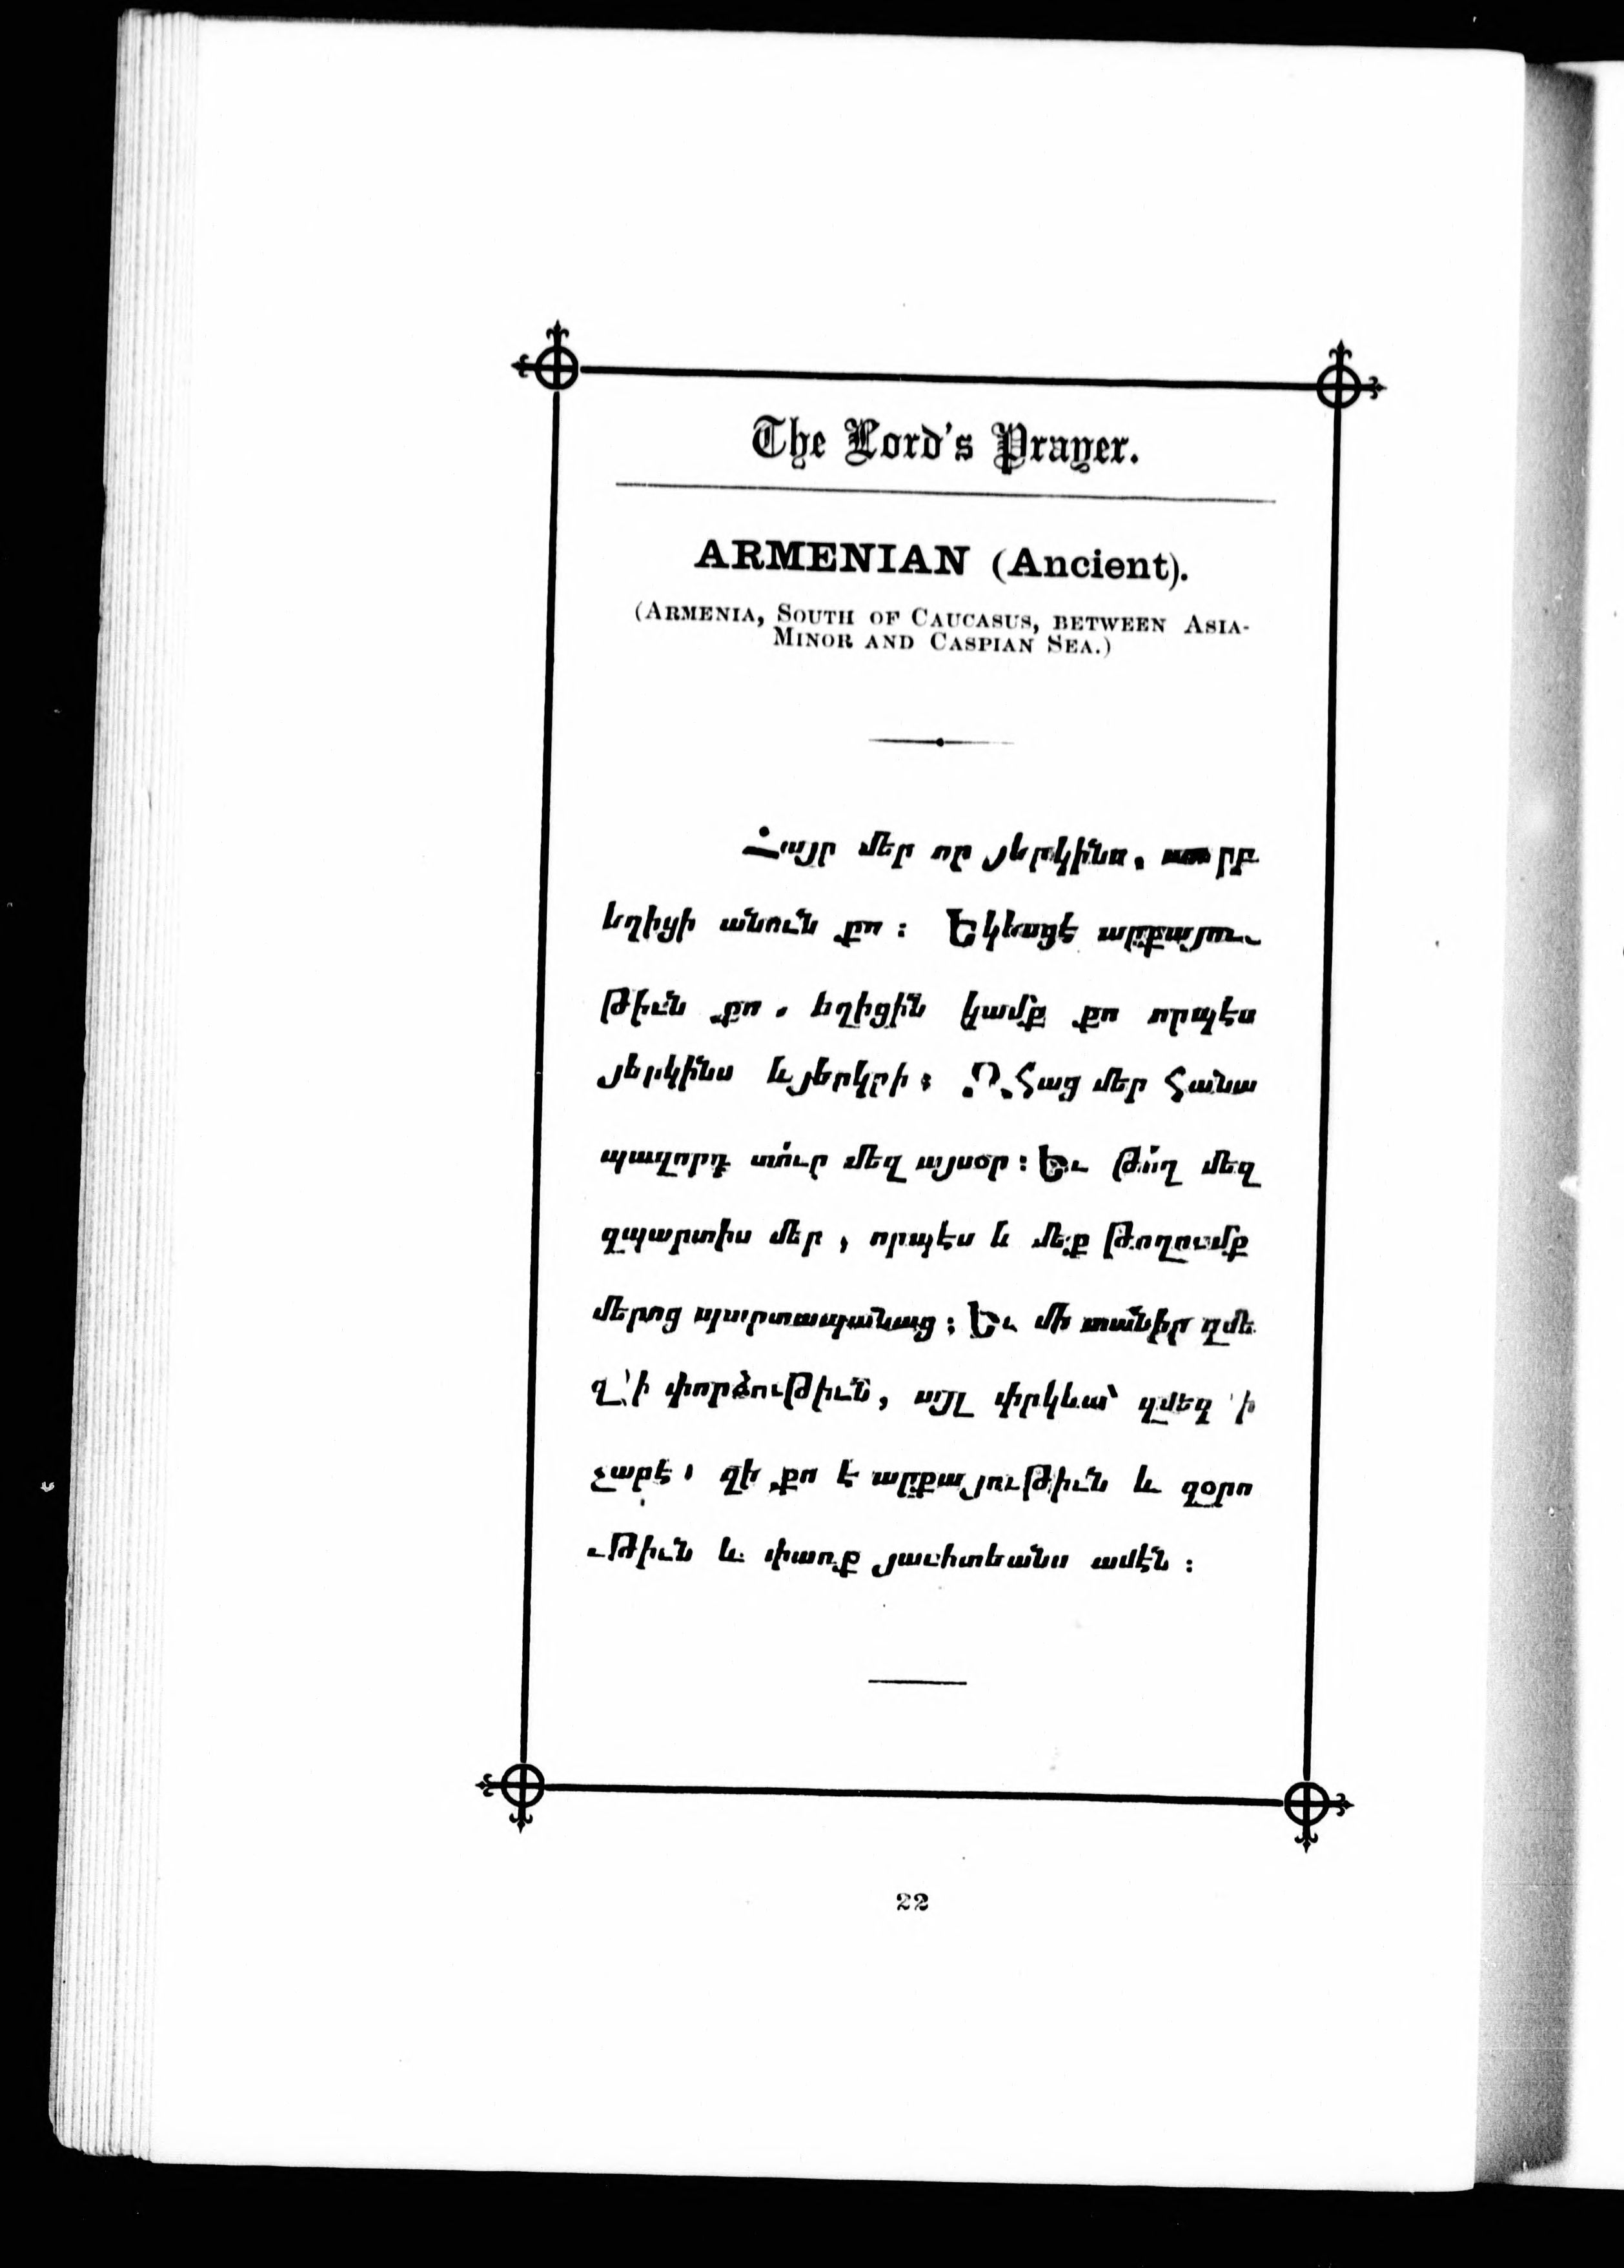 The Lord's Prayer.
ARMENIAN (Ancient).
(ARMENIA, SOUTH OF CAUCASUS, BETWEEN ASIA-
MINOR AND CASPIAN SEA.)
Հայր մեր որ յերկինս, սուրբ
եղիցի անուն քո ։ Եկեսցէ արքայու֊
թիւն քո, եղիցին կամք քո որպէս
յերկինս և յերկրի ։ Զհաց մեր հանա
պազորդ տո՛ւր մեզ այսօր ։ Եւ թո՛ղ մեզ
զպարտիս մեր, որպէս և մեք թողումք
մերոց պարտապանաց ։ Եւ մի տանիր զմե
զ ՚ի փորձութիւն, այլ փրկեա՝ զմեզ ՚ի
չարէ, զի քո է արքայութիւն և զօրո
ւթիւն և փառք յաւիտեանս ամէն ։
22